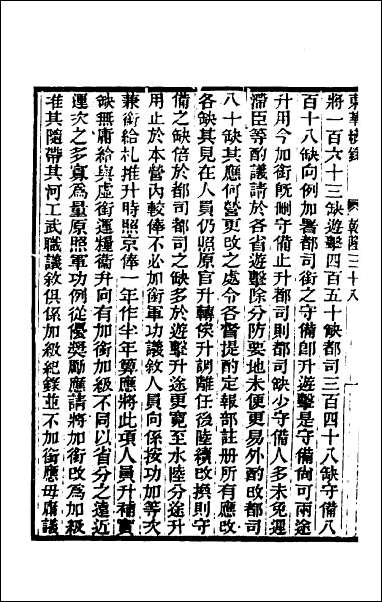 東華續錄 乾隆三十八
將一百六十三缺遊擊四百五十缺都司三百四十八缺守備八
百十八缺向例加署都司銜之守備卽升遊擊是守備尙可兩途
升用今加銜旣刪守備止升都司則都司缺少守備人多未免遲
滯臣等酌議請於各省遊擊除分防要地未便更易外酌改都司
八十缺其應何營更改之處令各督提酌定報部註册所有應改
各缺其見在人員仍照原官升轉俟升調離任後陸續改撰則守
備之缺倍於都司都司之缺多於遊擊升途更寬至水陸分途升
用止於本營內較俸不必加銜軍功議敘人員向係按功加等次
兼銜給札推升時照京俸一年作半年算應將此項人員升補實
缺無庸給與虛銜運糧衞升向有加銜加級不同以省分之遠近
運次之多寡爲量原照軍功例從優獎勵應請將加銜改爲加級
准其隨帶其河工武職議敘俱係加級紀錄並不加銜應毋庸議